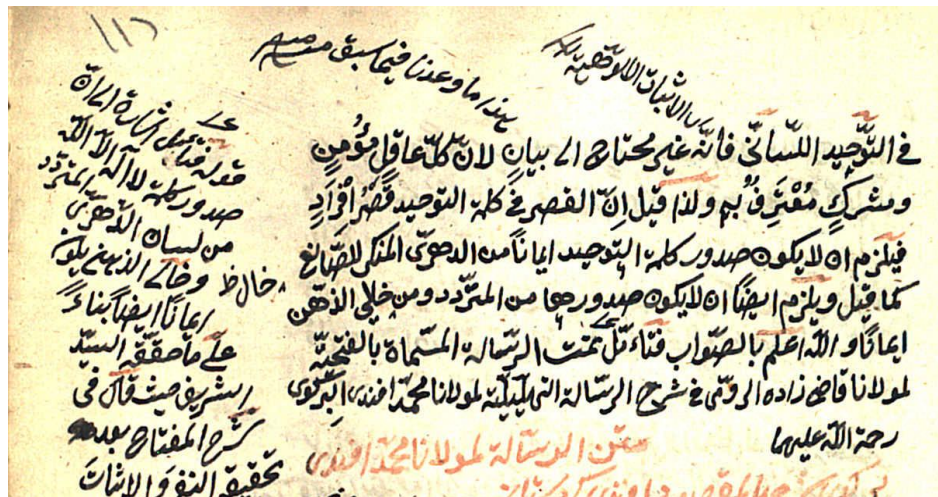 هذا ما وعدنا فيما سبق
في التوحيد اللساني فانه غير محتاج الى بيان لان كل عاقل مؤمن
ومشرك معترف به ولذا قيل ان القصر في كلمة التوحيد قصر افراد
فيلزم ان لا يكون صدور كلمة التوحيد ايمانا من الدهري المنكر للصانع
كما قيل ويلزم ايضا ان لا يكون صدورها من المتردد ومن خالي الذهن
ايمانا والله اعلم بالصواب فتأمل تمت الرسالة المسماة بالفتحية
لمولانا قاضي زاده الرومي في شرح الرسالة التهليلية لمولانا محمد افندي البركوي
رحمة الله عليهما
متن الرسالة لمولانا محمد افندي
قوله فتأمل اشارة الى ان
صدور كلمة لا اله الا الله
من لسان الدهري المتردد
وخالي الذهن يكون
ايمانا ايضا بناء
على ما حققه السيد
الشريف حيث قال في
شرح المفتاح بعد
تحقيق النفي والاثبات
خال ظ